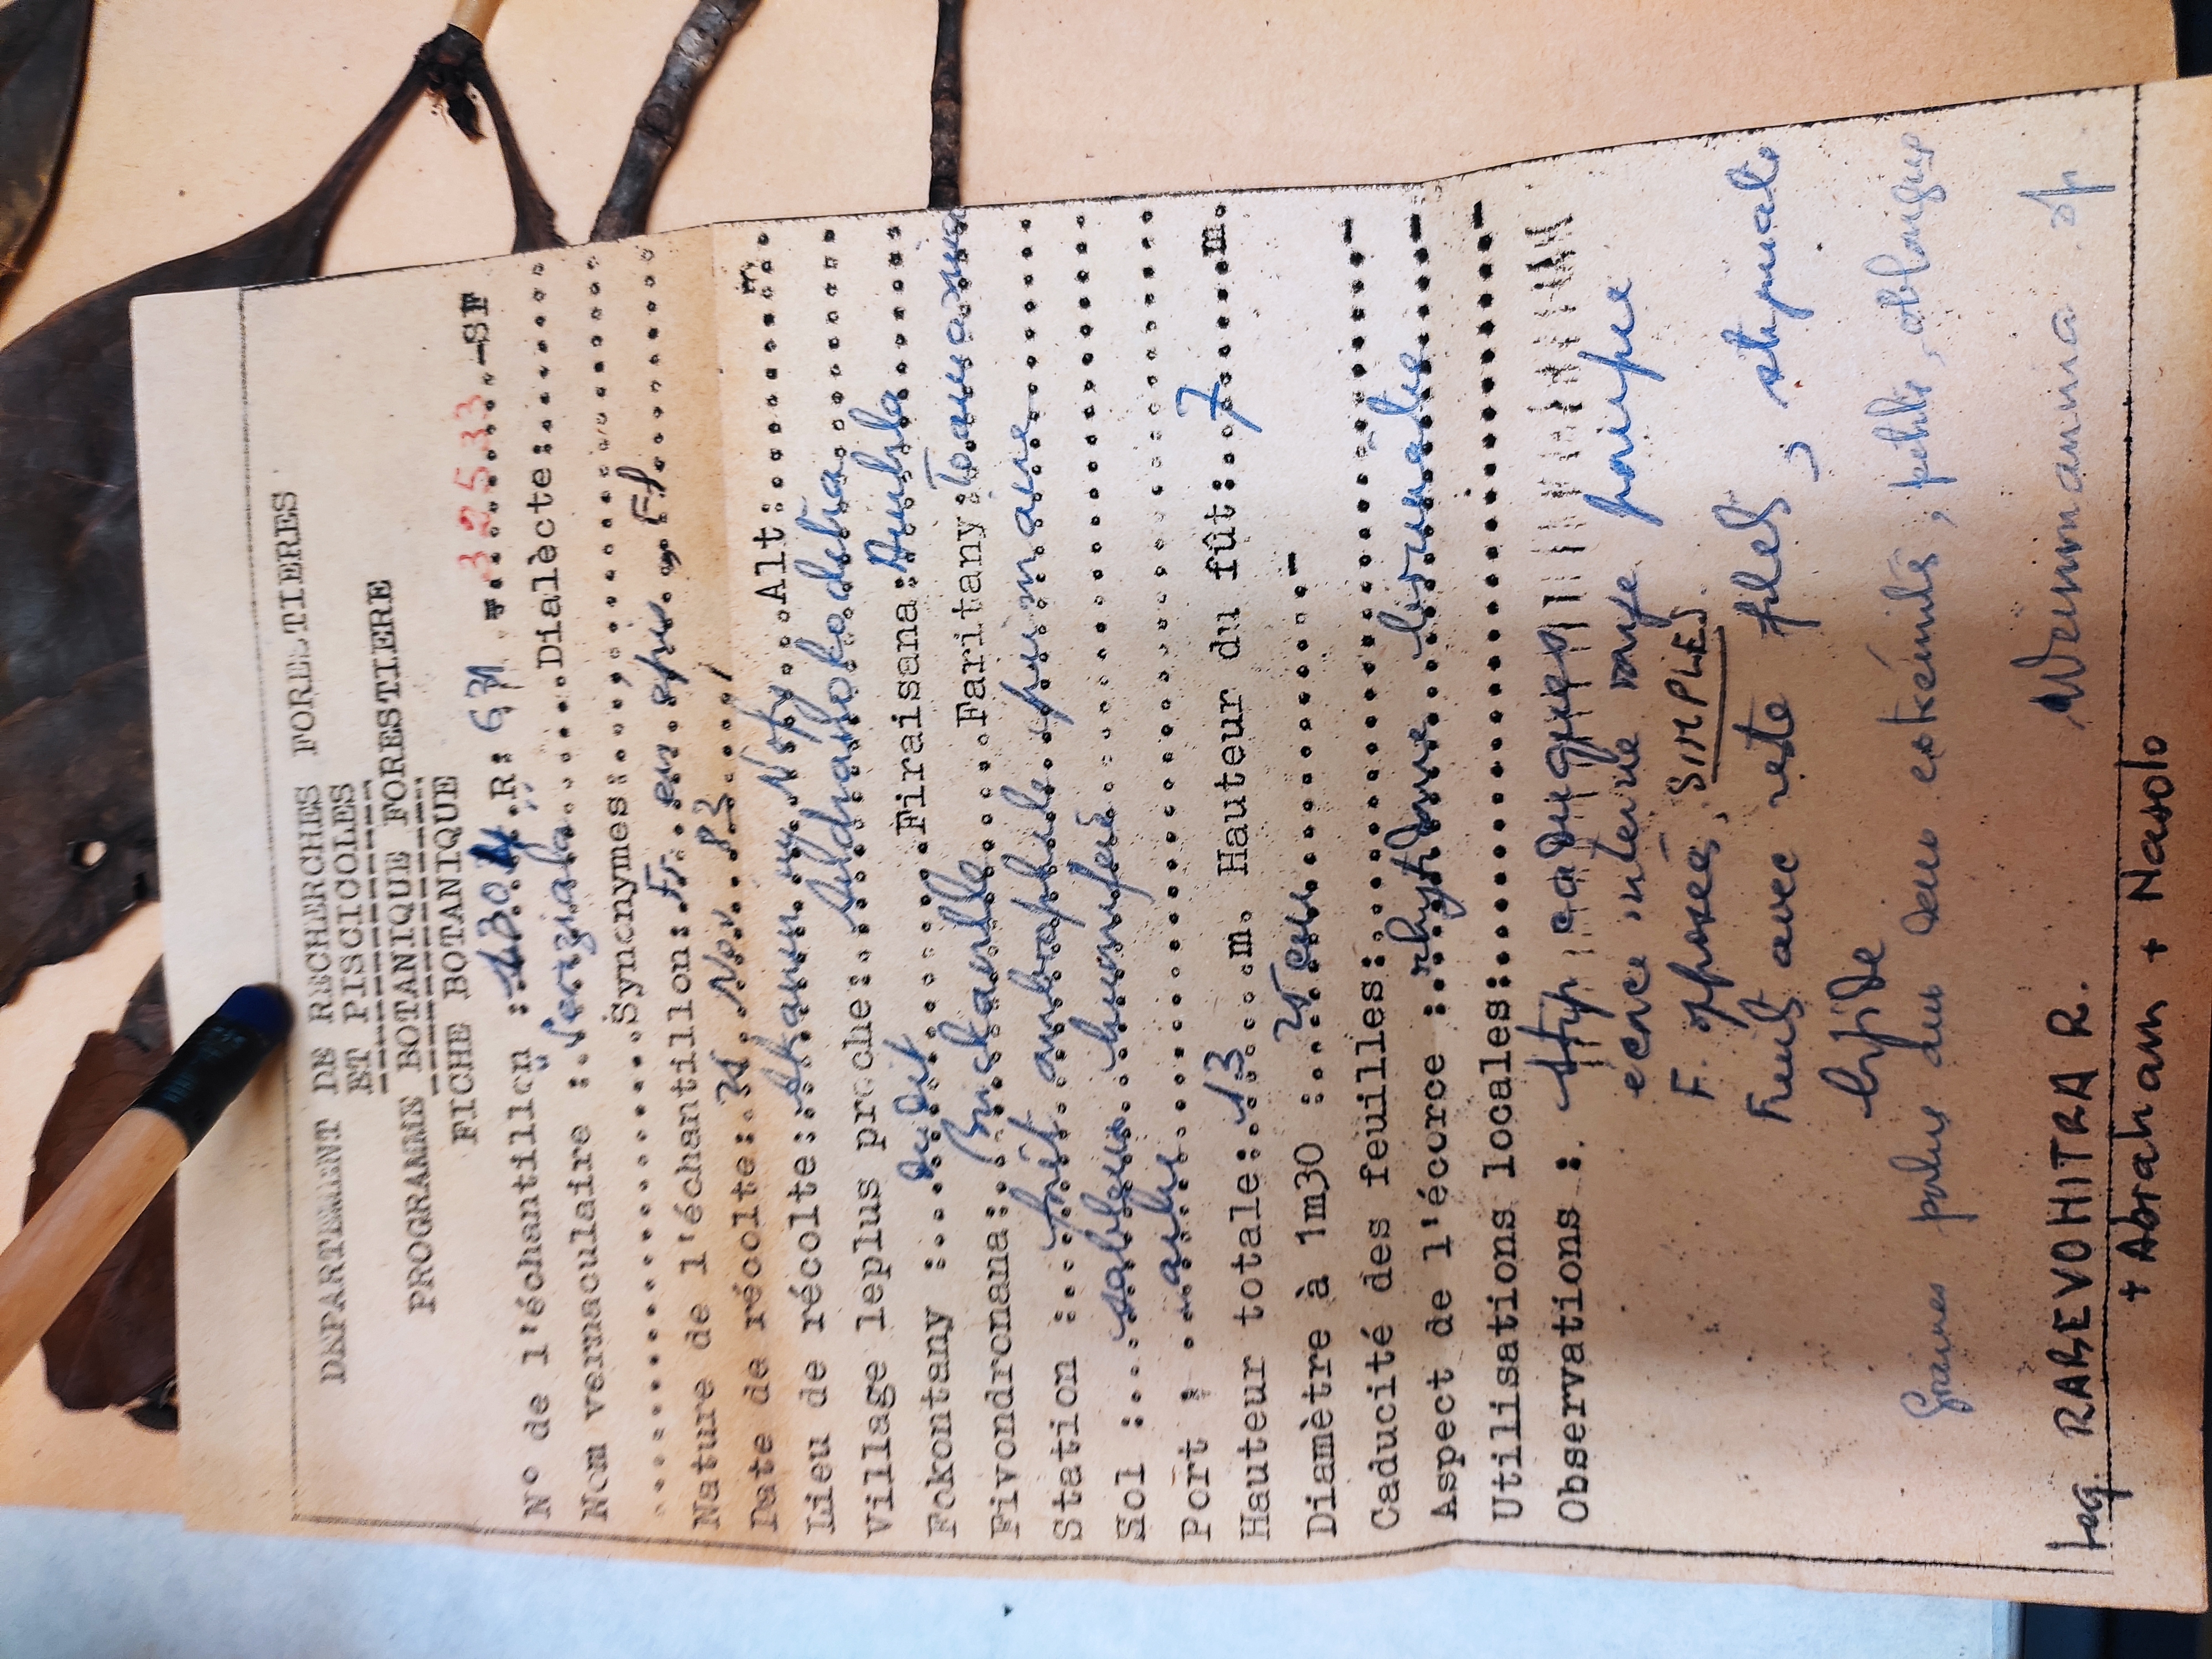 DEPARTEMENT DE RECHERCHES FORESTIERES
ET PISCICOLES
PROGRAMME BOTANIQUE FORESTIERE
FICHE BOTANIQUE
N° de l'échantillon : R: 671 32533 -SF
Nom vernaculaire : Dialècte:
Synonymes:
Nature de l'échantillon: Fr. en épis. Fl
Date de récolte: 21 Nov. 82 Alt: m
Lieu de récolte:
Village leplus proche: Ambodrianakodahia
Fokontany : dudit Firaisana: Ambila
Fivondronana: Brickaville Faritany: Toamasina
Station : forêt ombrophile primaire
Sol : sableux humifère
Port : arbre
Hauteur totale: 13 m. Hauteur du fût: 7 m.
Diamètre à 1m30 : 25 cm -
Caducité des feuilles: -
Aspect de l'écorce : rhytidome brunâtre -
Utilisations locales: -
Observations : Stip caduques
écorce interne rouge pourpre
F. opposées, SIMPLES
Fruits avec reste filets, stigmate
bifide
Graines poilues aux deux extrémités, petites, oblongues
Weinmannia sp
Leg. RABEVOHITRA R.
+ Abraham + Nasolo